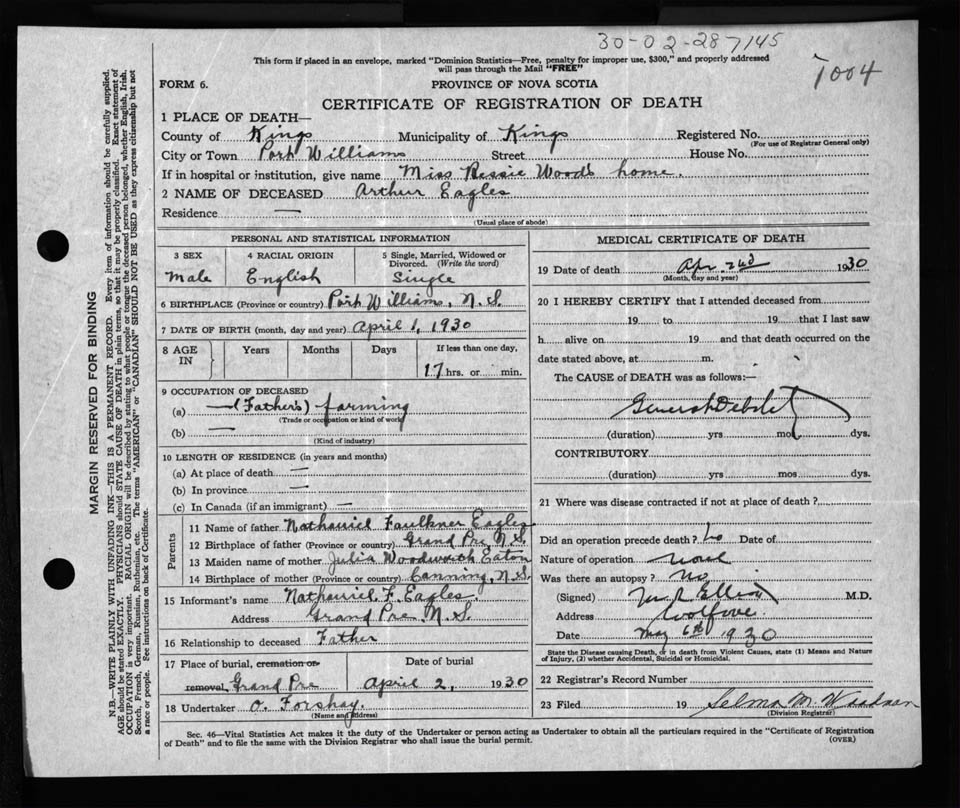 30-02-28 7145
This form if placed in an envelope, marked "Dominion Statistics—Free, penalty for improper use, $300," and properly addressed
will pass through the Mail "FREE"
1004
FORM 6.
PROVINCE OF NOVA SCOTIA
CERTIFICATE OF REGISTRATION OF DEATH
1 PLACE OF DEATH—
County of Kings Municipality of Kings Registered No.
(For use of Registrar General only)
City or Town Port Williams Street House No.
If in hospital or institution, give name Miss Bessie Woods home.
2 NAME OF DECEASED Arthur Eagles
Residence —
(Usual place of abode)
PERSONAL AND STATISTICAL INFORMATION
3 SEX 4 RACIAL ORIGIN 5 Single, Married, Widowed or
Divorced. (Write the word)
Male English Single
6 BIRTHPLACE (Province or country) Port Williams, N.S.
7 DATE OF BIRTH (month, day and year) April 1, 1930
8 AGE IN Years Months Days If less than one day,
17 hrs. or min.
9 OCCUPATION OF DECEASED
(a) —(Father's) farming
(Trade or occupation or kind of work)
(b) —
(Kind of industry)
10 LENGTH OF RESIDENCE (in years and months)
(a) At place of death —
(b) In province —
(c) In Canada (if an immigrant) —
Parents
11 Name of father Nathaniel Faulkner Eagles
12 Birthplace of father (Province or country) Grand Pre N.S.
13 Maiden name of mother Julia Woodworth Eaton
14 Birthplace of mother (Province or country) Canning, N.S.
15 Informant's name Nathaniel F. Eagles.
Address Grand Pre N.S.
16 Relationship to deceased Father
17 Place of burial, cremation or Date of burial
removal Grand Pre April 2, 1930
18 Undertaker O. Forshay.
(Name and address)
MEDICAL CERTIFICATE OF DEATH
19 Date of death Apr 2nd 1930
(Month, day and year)
20 I HEREBY CERTIFY that I attended deceased from
19 to 19 that I last saw
h alive on 19 and that death occurred on the
date stated above, at m.
The CAUSE of DEATH was as follows:—
General Debility
(duration) yrs mos dys.
CONTRIBUTORY
(duration) yrs mos dys.
21 Where was disease contracted if not at place of death?
Did an operation precede death? No Date of
Nature of operation none
Was there an autopsy? No
(Signed) Elliott M.D.
Address Wolfville
Date May 6th 1930
State the Disease causing Death, or in death from Violent Causes, state (1) Means and Nature
of Injury, (2) whether Accidental, Suicidal or Homicidal.
22 Registrar's Record Number
23 Filed 19 Selma M. Woodman
(Division Registrar)
Sec. 46—Vital Statistics Act makes it the duty of the Undertaker or person acting as Undertaker to obtain all the particulars required in the "Certificate of Registration
of Death" and to file the same with the Division Registrar who shall issue the burial permit.
(OVER)
MARGIN RESERVED FOR BINDING
N.B.—WRITE PLAINLY WITH UNFADING INK—THIS IS A PERMANENT RECORD. Every item of information should be carefully supplied.
AGE should be stated EXACTLY. PHYSICIANS should STATE CAUSE OF DEATH in plain terms, so that it may be properly classified. Exact statement of
OCCUPATION is very important. RACIAL ORIGIN will be described by stating to what people or tongue the deceased person belonged, whether English, Irish,
Scotch, French, German, Russian, Ruthenian, etc. The terms "AMERICAN" or "CANADIAN" SHOULD NOT BE USED as they express citizenship but not
a race or people. See instructions on back of Certificate.